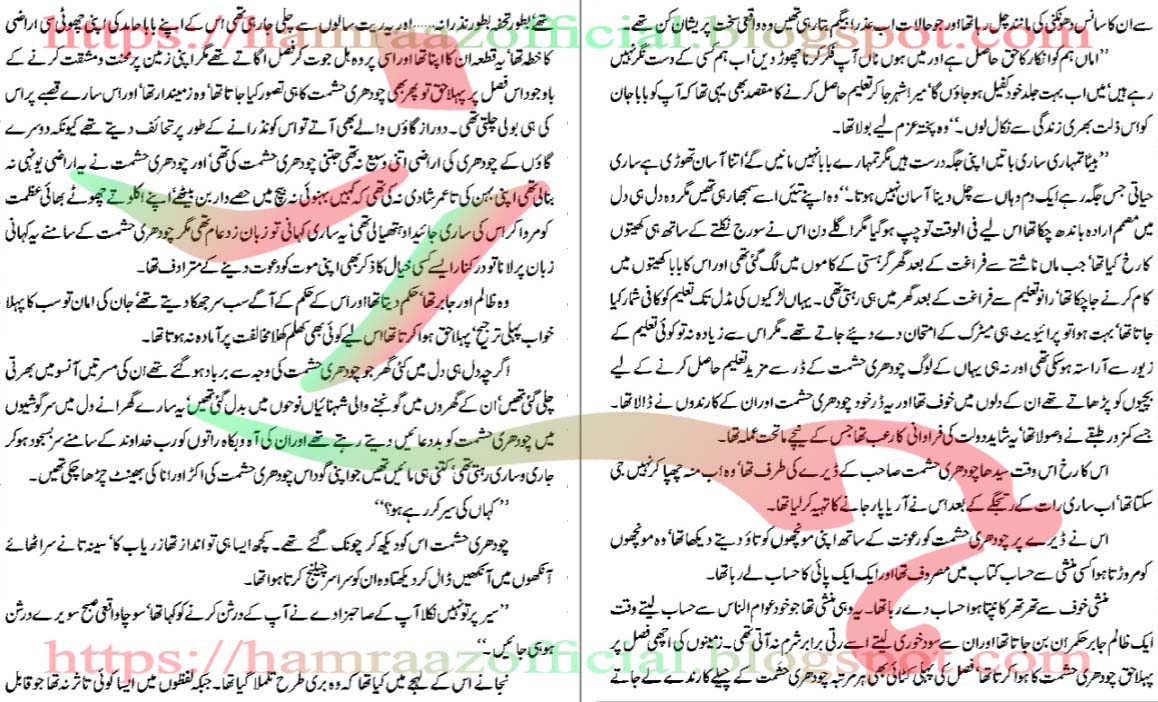 https://hamraazofficial.blogspot.com
سے ان کا سانس دھونکنی کی مانند چل رہا تھا اور جو حالات اب عذرا بیگم بتا رہی تھیں وہ واقعی سخت پریشان کن تھے
”اماں ہم کو انکار کا حق حاصل ہے اور میں ہوں ناں آپ فکر کرنا چھوڑ دیں اب ہم کسی کے دست نگر نہیں
رہے ہیں‘ میں اب بہت جلد خود کفیل ہو جاؤں گا‘ میرا شہر جا کر تعلیم حاصل کرنے کا مقصد بھی یہی تھا کہ آپ کو بابا جان
کو اس ذلت بھری زندگی سے نکال لوں۔“ وہ پختہ عزم لیے بولا تھا۔
”بیٹا تمہاری ساری باتیں اپنی جگہ درست ہیں مگر تمہارے بابا نہیں مانیں گے‘ اتنا آسان تھوڑی ہے ساری
حیاتی جس جگہ رہے ایک دم وہاں سے چل دینا آسان نہیں ہوتا۔“ وہ اپنے تئیں اسے سمجھا رہی تھیں مگر وہ دل ہی دل
میں مصمم ارادہ باندھ چکا تھا اس لیے فی الوقت تو چپ ہو گیا مگر اگلے دن اس نے سورج نکلتے کے ساتھ ہی کھیتوں
کا رخ کیا تھا‘ جب ماں ناشتے سے فراغت کے بعد گھر گرہستی کے کاموں میں لگ گئی تھی اور اس کا بابا کھیتوں میں
کام کرنے جا چکا تھا‘ رانو تعلیم سے فراغت کے بعد گھر میں ہی رہتی تھی۔ یہاں لڑکیوں کی مڈل تک تعلیم کو کافی شمار کیا
جاتا تھا‘ بہت ہوا تو پرائیویٹ ہی میٹرک کے امتحان دے دیئے جاتے تھے۔ مگر اس سے زیادہ نہ تو کوئی تعلیم کے
زیور سے آراستہ ہو سکی تھی اور نہ ہی یہاں کے لوگ چودھری حشمت کے ڈر سے مزید تعلیم حاصل کرنے کے لیے
بچیوں کو پڑھاتے تھے ان کے دلوں میں خوف تھا اور یہ ڈر خود چودھری حشمت اور ان کے کارندوں نے ڈالا تھا۔
جسے کمزور طبقے نے وصولا تھا‘ یہ شاید دولت کی فراوانی کا رعب تھا جس کے نیچے ماتحت عملہ تھا۔
اس کا رخ اس وقت سیدھا چودھری حشمت صاحب کے ڈیرے کی طرف تھا‘ وہ اب منہ چھپا کر نہیں جی
سکتا تھا‘ اب ساری رات کے رتجگے کے بعد اس نے آر یا پار جانے کا تہیہ کر لیا تھا۔
اس نے ڈیرے پر چودھری حشمت کو رعونت کے ساتھ اپنی مونچھوں کو تاؤ دیتے دیکھا تھا‘ وہ مونچھوں
کو مروڑتا ہوا کسی منشی سے حساب کتاب میں مصروف تھا اور ایک ایک پائی کا حساب لے رہا تھا۔
منشی خوف سے تھر تھر کانپتا ہوا حساب دے رہا تھا۔ یہ وہی منشی تھا جو خود عوام الناس سے حساب لیتے وقت
ایک ظالم جابر حکمران بن جاتا تھا اور ان سے سود خوری لیتے اسے رتی برابر شرم نہ آتی تھی۔ زمینوں کی اچھی فصل پر
پہلا حق چودھری حشمت کا ہوا کرتا تھا‘ فصل کی پہلی کٹائی بھی ہر مرتبہ چودھری حشمت کے چیلے کارندے لے جاتے
تھے‘ بطور تحفہ بطور نذرانہ...... اور یہ ریت سالوں سے چلی جا رہی تھی اس کے اپنے بابا حامد کی اپنی چھوٹی سی اراضی
کا خطہ تھا‘ یہ قطعہ ان کا اپنا تھا اور اسی پر وہ ہل جوت کر فصل اگاتے تھے مگر اپنی زمین پر محنت و مشقت کرنے کے
باوجود اس فصل پر پہلا حق تو پھر بھی چودھری حشمت کا ہی تصور کیا جاتا تھا‘ وہ زمیندار تھا‘ اور اس سارے قصبے پر اس
کی ہی بولی چلتی تھی۔ دور از گاؤں والے بھی آتے تو اس کو نذرانے کے طور پر تحائف دیتے تھے کیونکہ دوسرے
گاؤں کے چودھری کی اراضی اتنی وسیع نہ تھی جتنی چودھری حشمت کی تھی‘ اور چودھری حشمت نے یہ اراضی یونہی نہ
بنالی تھی اپنی بہن کی تاعمر شادی نہ کی تھی کہ کہیں بہنوئی نہ بیچ میں حصے دار بن بیٹھے‘ اپنے اکلوتے چھوٹے بھائی عظمت
کو مروا کر اس کی ساری جائیداد ہتھیالی تھی‘ یہ ساری کہانی تو زبان زد عام تھی مگر چودھری حشمت کے سامنے یہ کہانی
زبان پر لانا تو درکنار ایسے کسی خیال کا ذکر بھی اپنی موت کو دعوت دینے کے مترادف تھا۔
وہ ظالم اور جابر تھا‘ حکم دیتا تھا اور اس کے حکم کے آگے سب سر جھکا دیتے تھے‘ جان کی امان تو سب کا پہلا
خواب پہلی ترجیح‘ پہلا حق ہوا کرتا تھا اس لیے کوئی بھی کھلم کھلا مخالفت پر آمادہ نہ ہوتا تھا۔
اگرچہ دل ہی دل میں کئی گھر جو چودھری حشمت کی وجہ سے برباد ہو گئے تھے ان کی مسرتیں آنسو میں بھرتی
چلی گئی تھیں‘ ان کے گھروں میں گونجنے والی شہنائیاں نوحوں میں بدل گئی تھیں‘ یہ سارے گھرانے دل میں سرگوشیوں
میں چودھری حشمت کو بددعائیں دیتے رہے تھے اور ان کی آہ و بکاہ راتوں کو رب خداوند کے سامنے سر بسجود ہو کر
جاری و ساری رہتی تھی‘ کتنی ہی مائیں تھیں جو اپنی گود اس چودھری حشمت کی اکڑ اور انا کی بھینٹ چڑھا چکی تھیں۔
”کہاں کی سیر کر رہے ہو؟“
چودھری حشمت اس کو دیکھ کر چونک گئے تھے۔ کچھ ایسا ہی تو انداز تھا زریاب کا‘ سینہ تانے سر اٹھائے
آنکھوں میں آنکھیں ڈال کر دیکھتا وہ ان کو سراسر چیلنج کرتا ہوا تھا۔
”سیر پر تو نہیں نکلا آپ کے صاحبزادے نے آپ کے درشن کرنے کو کہا تھا‘ سوچا واقعی صبح سویرے درشن
ہو ہی جائیں۔“
نجانے اس کے لہجے میں کیا تھا کہ وہ بری طرح تلملا گیا تھا۔ جبکہ لفظوں میں ایسا کوئی تاثر نہ تھا جو قابل
https://hamraazofficial.blogspot.com